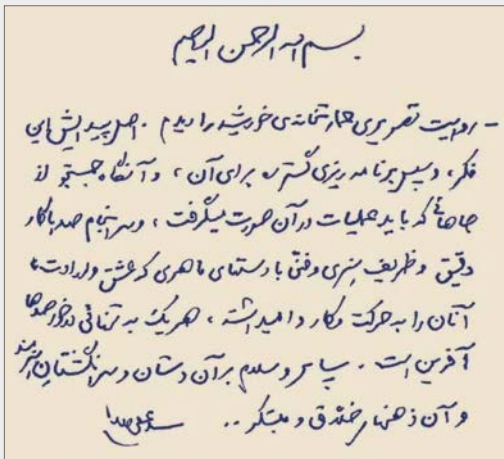 بسم الله الرحمن الرحیم
- روایت تصویری عمارتخانه‌ی خورشید را دیدم. اصل پیدایش این
فکر، و سپس برنامه ریزی گسترده برای آن، و آنگاه جستجو از
جاهائی که باید عملیات در آن صورت میگرفت، و سرانجام صدها کار
دقیق و ظریف هنری و فنی با دستهای ماهری که عشق و ارادت،
آنان را به حرکت و کار وامیداشته، هر یک به تنهائی درخور صدها
آفرین است. سپاس و سلام بر آن دستان و سرانگشتان هنرمند
و آن ذهنهای خلاق و مبتکر ..